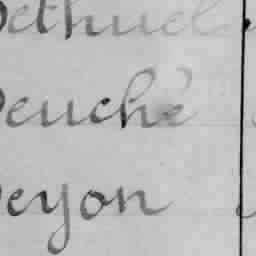 Dethuel
Deuché
Deyon